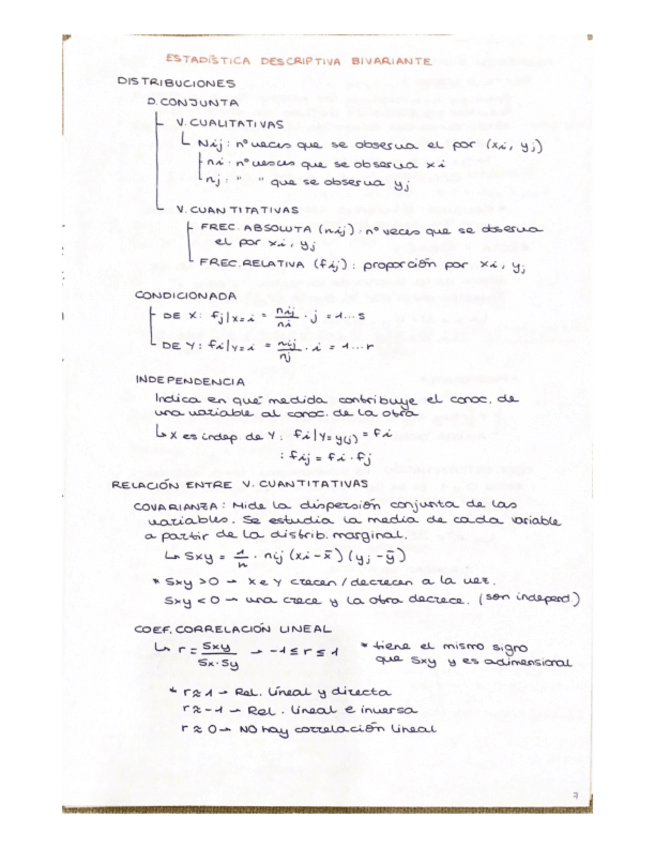 ESTADÍSTICA DESCRIPTIVA BIVARIANTE
DISTRIBUCIONES
D. CONJUNTA
V. CUALITATIVAS
Nij: nº veces que se observa el par (xi, yj)
ni: nº veces que se observa xi
nj: " " que se observa yj
V. CUANTITATIVAS
FREC. ABSOLUTA (nij): nº veces que se observa
el par xi, yj
FREC. RELATIVA (fij): proporción par xi, yj
CONDICIONADA
DE X: fj|x=i = nij/ni · j = 1...s
DE Y: fi|y=i = nij/nj · i = 1...r
INDEPENDENCIA
Indica en que medida contribuye el conoc. de
una variable al conoc. de la otra
↳ X es indep de Y: fi|Y=y(j) = fi
: fij = fi · fj
RELACIÓN ENTRE V. CUANTITATIVAS
COVARIANZA: Mide la dispersión conjunta de las
variables. Se estudia la media de cada variable
a partir de la distrib. marginal.
↳ Sxy = 1/n · nij (xi - x̄) (yj - ȳ)
* Sxy > 0 → X e Y crecen / decrecen a la vez.
Sxy < 0 → una crece y la otra decrece. (son independ.)
COEF. CORRELACIÓN LINEAL
↳ r = Sxy/Sx·Sy → -1 ≤ r ≤ 1 * tiene el mismo signo
que Sxy y es adimensional
* r ≈ 1 → Rel. lineal y directa
r ≈ -1 → Rel. lineal e inversa
r ≈ 0 → NO hay correlación lineal